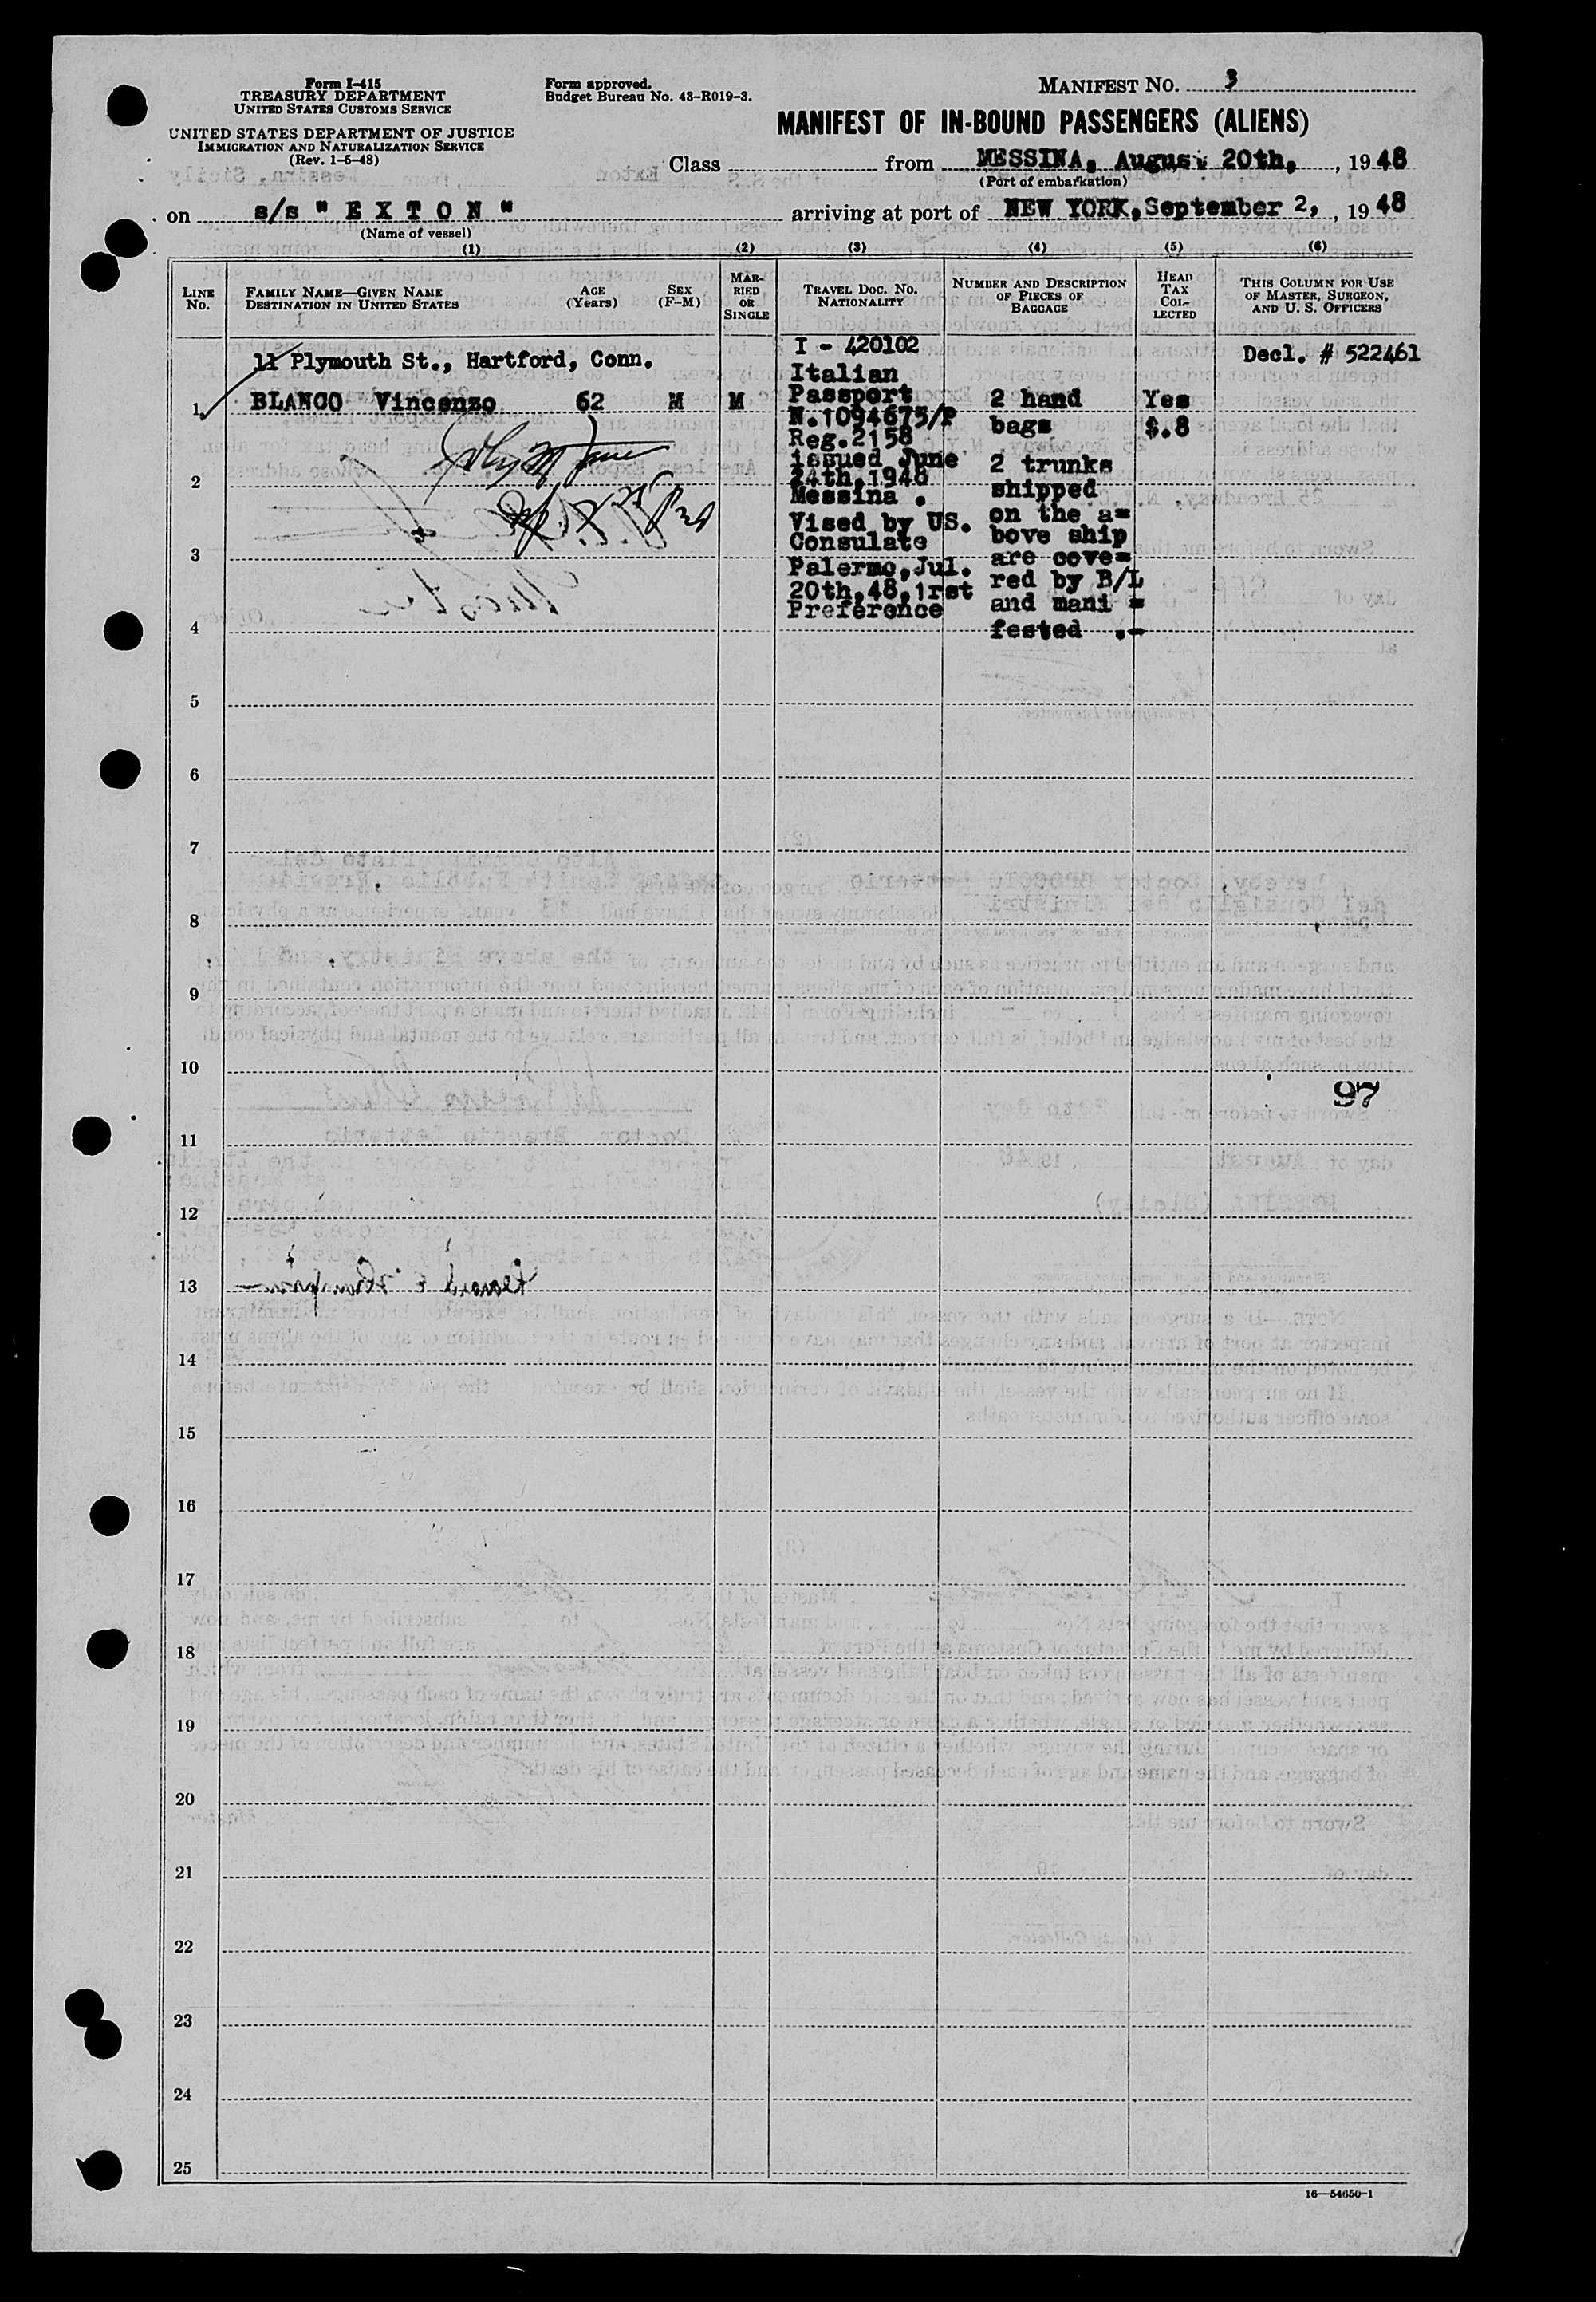 Form I-415
TREASURY DEPARTMENT
UNITED STATES CUSTOMS SERVICE
UNITED STATES DEPARTMENT OF JUSTICE
IMMIGRATION AND NATURALIZATION SERVICE
(Rev. 1-5-48)
Form approved.
Budget Bureau No. 43-R019-3.
MANIFEST NO. 3
MANIFEST OF IN-BOUND PASSENGERS (ALIENS)
Class from MESSINA, August 20th, , 1948
(Port of embarkation)
on s/s " E X T O N " arriving at port of NEW YORK, September 2, , 1948
(Name of vessel)
(1) (2) (3) (4) (5) (6)
LINE No.
FAMILY NAME—GIVEN NAME
DESTINATION IN UNITED STATES
AGE (Years)
SEX (F-M)
MARRIED OR SINGLE
TRAVEL DOC. NO.
NATIONALITY
NUMBER AND DESCRIPTION
OF PIECES OF
BAGGAGE
HEAD
TAX
COLLECTED
THIS COLUMN FOR USE
OF MASTER, SURGEON,
AND U. S. OFFICERS
11 Plymouth St., Hartford, Conn.
1 BLANCO Vincenzo 62 M M
I - 420102
Italian
Passport
N.1094675/P
Reg.2158
issued June
24th,1948
Messina .
Vised by US.
Consulate
Palermo,Jul.
20th,48,1rst
Preference
2 hand
bags
2 trunks
shipped
on the a=
bove ship
are cove=
red by B/L
and mani =
fested .-
Yes
$.8
Decl. # 522461
2
3
4
5
6
7
8
9
10
97
11
12
13
14
15
16
17
18
19
20
21
22
23
24
25
16—54650-1